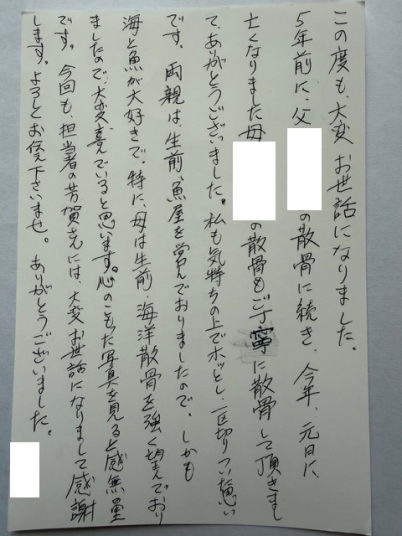 この度も、大変お世話になりました。
5年前に、父 の散骨に続き、今年、元日に
亡くなりました母 の散骨もご丁寧に散骨して頂きまし
て、ありがとうございました。私も気持ちの上でホッとし、一区切りつい思い
です。両親は、生前、魚屋を営んでおりましたので、しかも
海と魚が大好きで。特に、母は生前、海洋散骨を強く望んでおり
ましたので、大変、喜んでいると思います。心のこもった写真を見ると感無量
です。今回も、担当者の芳賀さんには、大変お世話になりまして感謝
します。よろしくお伝え下さいませ。ありがとうございました。